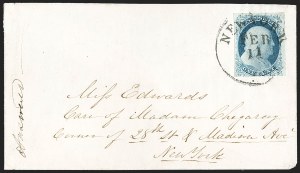 NEW
FEB
11
Miss Edwards
Care of Madam Chegaray
Corner of 28th St & Madison Ave
New York